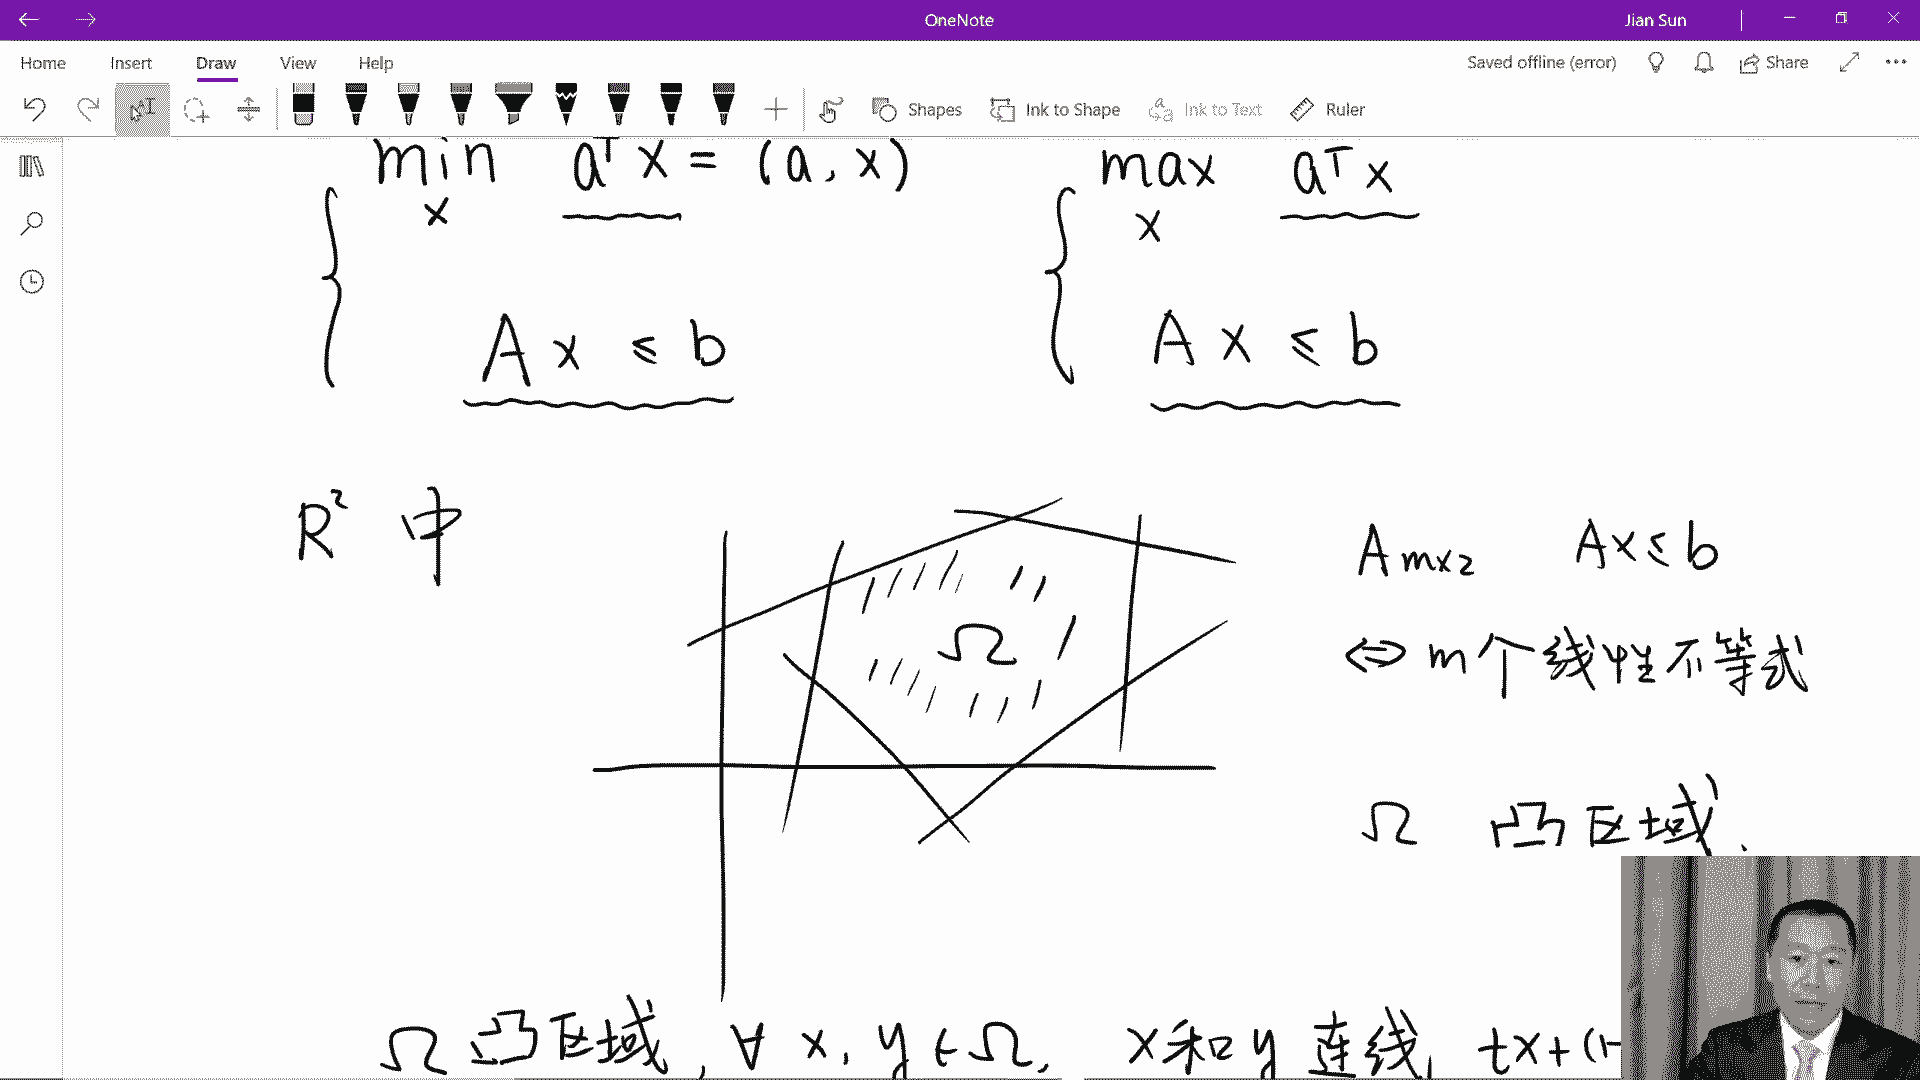 OneNote
Jian Sun
Home Insert Draw View Help
Saved offline (error) Share
Shapes Ink to Shape Ink to Text Ruler
min aᵀx = (a, x) max aᵀx
x x
Ax ≤ b Ax ≤ b
R² 中
Ω
A m×2 Ax ≤ b
⇔ m个线性不等式
Ω 凸区域.
Ω 凸区域, ∀ x, y ∈ Ω, x和y连线, tx+(1-